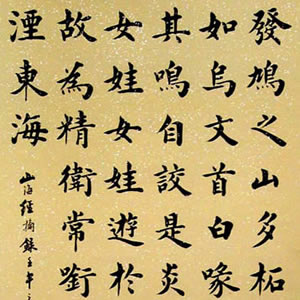 發鳩之山多柘
如烏文首白喙
其鳴自詨是炎
女娃女娃遊於
故為精衛常銜
湮東海
山海經摘錄壬午